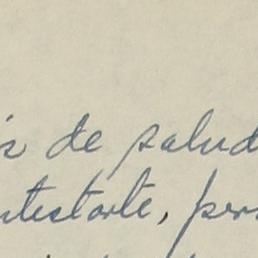 de salud
ntestarte, per